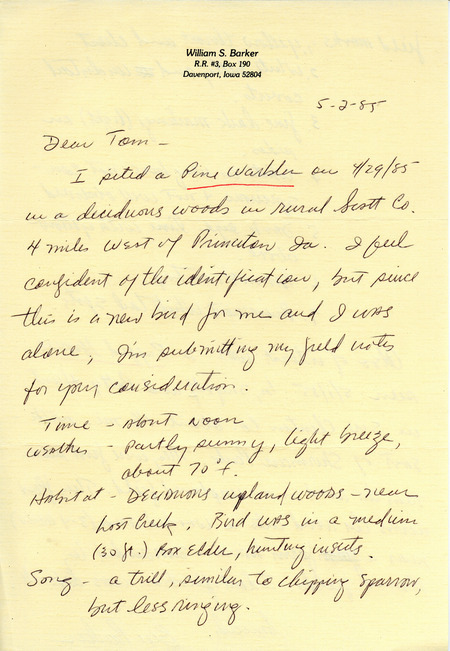 William S. Barker
R.R. #3, Box 190
Davenport, Iowa 52804
5-2-85
Dear Tom -
I sited a Pine Warbler on 4/29/85
in a deciduous woods in rural Scott Co.
4 miles west of Princeton Ia. I feel
confident of the identification, but since
this is a new bird for me and I was
alone, I'm submitting my field notes
for your consideration.
Time - About Noon
Weather - Partly sunny, light breeze,
about 70°f.
Habitat - Deciduous upland woods - near
Lost Creek. Bird was in a medium
(30 ft.) Box Elder, hunting insects.
Song - a trill, similar to chipping sparrow,
but less ringing.